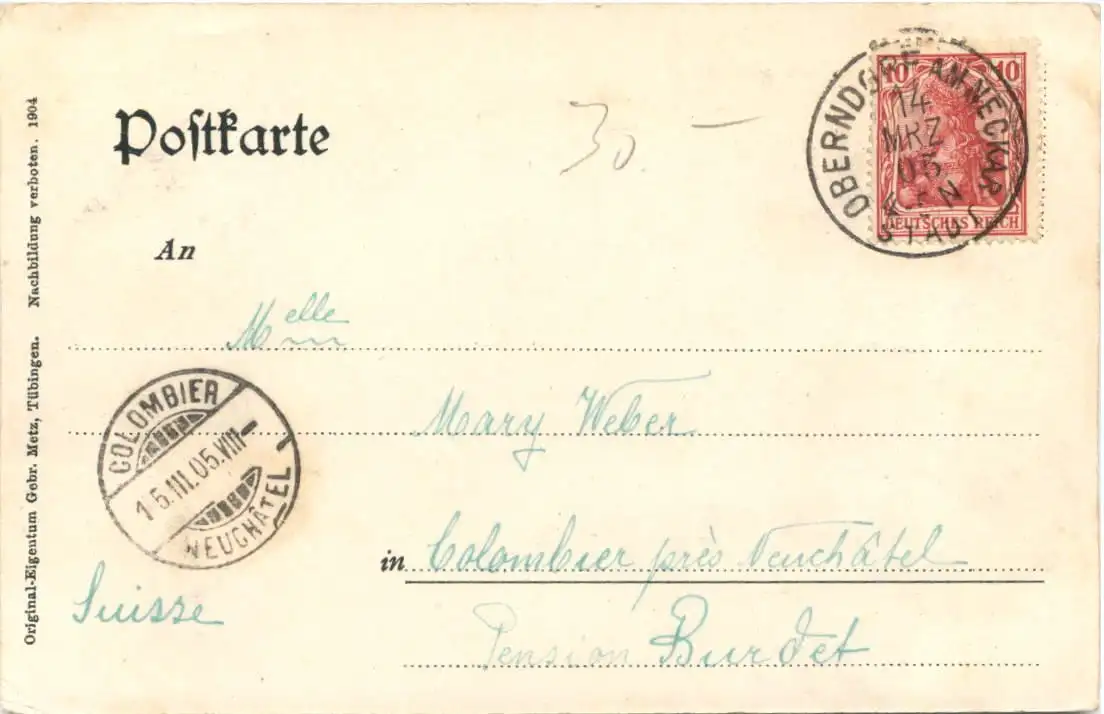 Postkarte
30 —
10 10
DEUTSCHES REICH
OBERNDORF AM NECKAR
14
MRZ
05
N
STADT
An
Melle
Mary Weber
COLOMBIER
15.III.05.VIII–
NEUCHÂTEL
in Colombier près Neuchâtel
Suisse
Pension Burdet
Original-Eigentum Gebr. Metz, Tübingen. Nachbildung verboten. 1904